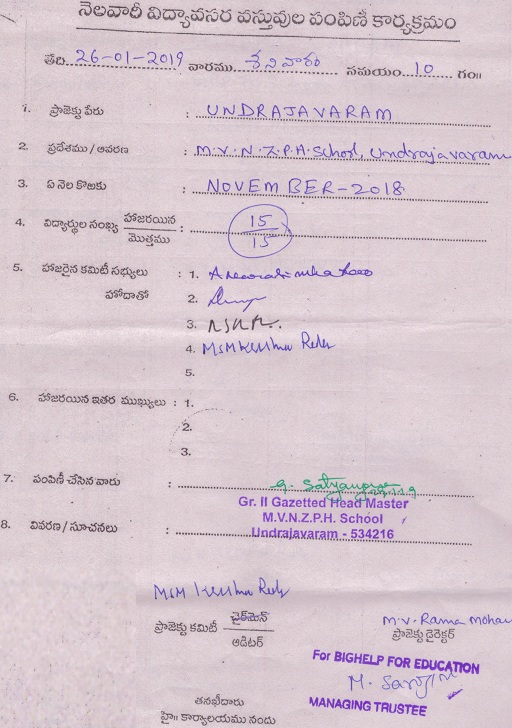 నెలవారీ విద్యావసర వస్తువుల పంపిణీ కార్యక్రమం
తేది. 26-01-2019 వారము. శనివారం సమయం. 10 గం॥
1. ప్రాజెక్టు పేరు : UNDRAJAVARAM
2. ప్రదేశము / ఆవరణ : M.V.N.Z.P.H. School, Undrajavaram
3. ఏ నెల కొఱకు : NOVEMBER-2018
4. విద్యార్థుల సంఖ్య హాజరయిన / మొత్తము : 15 / 15
5. హాజరైన కమిటీ సభ్యులు : 1.
హోదాతో 2.
3.
4. MSM Krishna Reddy
5.
6. హాజరయిన ఇతర ముఖ్యులు : 1.
2.
3.
7. పంపిణీ చేసిన వారు : G. Satyanarayana
Gr. II Gazetted Head Master
M.V.N.Z.P.H. School
8. వివరణ / సూచనలు : Undrajavaram - 534216
MSM Krishna Reddy
ప్రాజెక్టు కమిటీ చైర్‌మెన్ / ఆడిటర్
M.V. Rama Mohan
ప్రాజెక్టు డైరెక్టర్
For BIGHELP FOR EDUCATION
MANAGING TRUSTEE
తనఖీదారు
హె॥ కార్యాలయము నందు